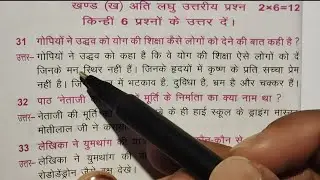 खण्ड (ख) अति लघु उत्तरीय प्रश्न 2×6=12
किन्हीं 6 प्रश्नों के उत्तर दें।
31 गोपियों ने उद्धव को योग की शिक्षा कैसे लोगों को देने की बात कही है ?
उत्तर– गोपियों ने उद्धव को कहा है कि वे योग की शिक्षा ऐसे लोगों को दें
जिनके मन स्थिर नहीं हैं। जिनके हृदयों में कृष्ण के प्रति सच्चा प्रेम
नहीं है। में भटकाव है, दुविधा है, भ्रम है और चक्कर हैं।
32 पाठ 'नेताजी की मूर्ति के निर्माता का क्या नाम था ?
उत्तर– नेताजी की मूर्ति के ही हाई स्कूल के ड्राइंग मास्टर
मोतीलाल जी ने
33 लेखिका ने युमथांग
उत्तर– लेखिका ने युमथांग की
रोडोडेंड्रोन देखे।